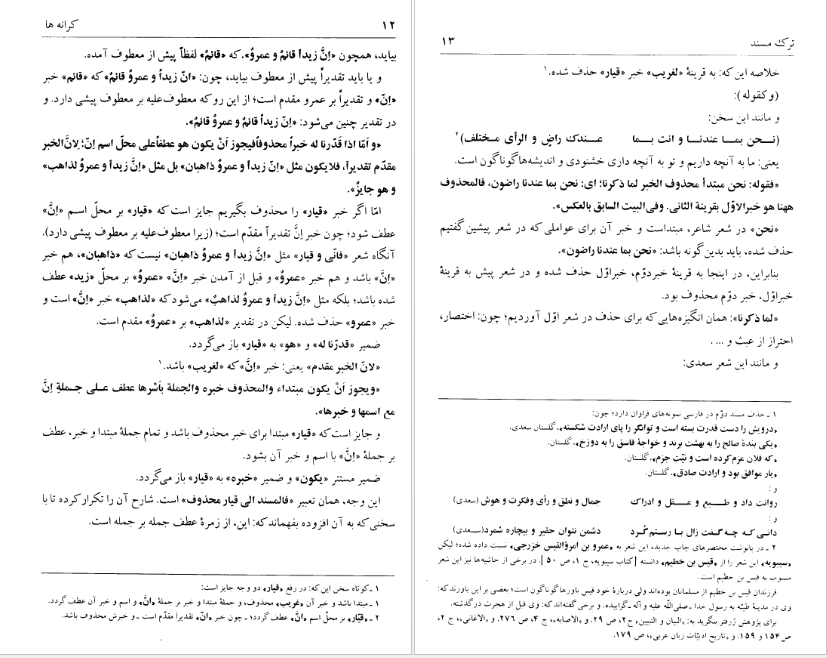 ۱۲
کرانه ها
بیاید، همچون «اِنَّ زیداً قائمٌ و عمروٌ». که «قائمٌ» لفظاً پیش از معطوف آمده.
و یا باید تقدیراً پیش از معطوف بیاید، چون: «انّ زیداً و عمروٌ قائمٌ» که «قائم» خبر
«اِنّ» و تقدیراً بر عمرو مقدم است؛ از این رو که معطوف‌علیه بر معطوف پیشی دارد. و
در تقدیر چنین می‌شود: «اِنّ زیداً قائمٌ و عمروٌ قائمٌ».
«و اَمّا اذا قَدّرنا له خبراً محذوفاً فیجوز اَنْ یکون هو عطفاً علی محلّ اسم اِنّ؛ لانَّ الخبر
مقدّم تقدیراً، فلا یکون مثل «اِنّ زیداً و عمروٌ ذاهبان» بل مثل «اِنَّ زیداً و عمروٌ لذاهب»
و هو جایزٌ».
امّا اگر خبر «قیار» را محذوف بگیریم جایز است که «قیار» بر محلّ اسم «اِنَّ»
عطف شود؛ چون خبر اِنَّ تقدیراً مقدّم است؛ (زیرا معطوف‌علیه بر معطوف پیشی دارد).
آنگاه شعر «فانّی و قیار» مثل «اِنَّ زیداً و عمروٌ ذاهبان» نیست که «ذاهبان»، هم خبر
«اِنَّ» باشد و هم خبر «عمروٌ» و قبل از آمدن خبر «اِنَّ» «عمروٌ» بر محلّ «زید» عطف
شده باشد؛ بلکه مثل «اِنَّ زیداً و عمروٌ لذاهبٌ» می‌شود که «لذاهب» خبر «اِنَّ» است و
خبر «عمرو» حذف شده. لیکن در تقدیر «لذاهب» بر «عمروٌ» مقدم است.
ضمیر «قدّرنا له» و «هو» به «قیار» باز می‌گردد.
«لانّ الخبر مقدم» یعنی: خبر «اِنَّ» که «لغریب» باشد.۱
«ویجوز اَنْ یکون مبتداء والمحذوف خبره والجملة بأسْرها عطف علی جملةِ اِنَّ
مع اسمها و خبرها».
و جایز است که «قیار» مبتدا برای خبر محذوف باشد و تمام جملهٔ مبتدا و خبر، عطف
بر جملهٔ «اِنَّ» با اسم و خبر آن بشود.
ضمیر مستتر «یکون» و ضمیر «خبره» به «قیار» باز می‌گردد.
این وجه، همان تعبیر «فالمسند الی قیار محذوف» است. شارح آن را تکرار کرده تا با
سخنی که به آن افزوده بفهماند که: این، از زمرهٔ عطف جمله بر جمله است.
۱ ـ کوتاه سخن این که: در رفع «قیار» دو وجه جایز است:
۱ ـ مبتدا باشد و خبر آن «غریب» محذوف، و جملهٔ مبتدا و خبر بر جملهٔ «انَّ» و اسم و خبر آن عطف گردد.
۲ ـ «قَیّار» بر محل اسم «انَّ» عطف گردد؛ ـ چون خبر «انّ» تقدیراً مقدّم است ـ و خبرش محذوف باشد.
ترک مسند
۱۳
خلاصه این که: به قرینهٔ «لغریب» خبر «قیار» حذف شده.۱
(وکقوله):
و مانند این سخن:
(نـحن بمـا عندنـا و انت بـمـا عـنـدک راضٍ و الرأی مـختلف)۲
یعنی: ما به آنچه داریم و تو به آنچه داری خشنودی و اندیشه‌ها گوناگون است.
«فقوله: نحن مبتدأ محذوف الخبر لما ذکرنا؛ ای: نحن بما عندنا راضون، فالمحذوف
ههنا هو خبر الاوّل بقرینة الثانی. وفی البیت السابق بالعکس».
«نحن» در شعر شاعر، مبتداست و خبر آن برای عواملی که در شعر پیشین گفتیم
حذف شده، باید بدین‌گونه باشد: «نحن بما عندنا راضون».
بنابراین، در اینجا به قرینهٔ خبردوّم، خبراوّل حذف شده و در شعر پیش به قرینهٔ
خبراوّل، خبر دوّم محذوف بود.
«لما ذکرنا»: همان انگیزه‌هایی که برای حذف در شعر اوّل آوردیم؛ چون: اختصار،
احتراز از عبث و ... .
و مانند این شعر سعدی:
۱ ـ حذف مسند دوّم در فارسی نمونه‌های فراوان دارد؛ چون:
«درویش را دست قدرت بسته است و توانگر را پای ارادت شکسته». گلستان سعدی.
«یکی بندهٔ صالح را به بهشت برند و خواجهٔ فاسق را به دوزخ». گلستان.
«که فلان عزم کرده است و نیّت جزم». گلستان.
«یار موافق بود و ارادت صادق». گلستان.
و :
روانت داد و طبع و عقل و ادراک جمال و نطق و رأی وفکرت و هوش (سعدی)
و :
دانـی که چـه گـفت زال بـا رستم گُـرد دشمن نتوان حقیر و بیچاره شمرد (سـعدی)
۲ ـ در پانوشت مختصرهای چاپ جدید، این شعر به «عمرو بن امرؤالقیس خزرجی» نسبت داده شده؛ لیکن
«سیبویه» این شعر را از «قیس بن خطیم» دانسته [کتاب سیبویه، ج ۱، ص ۵۰]. در برخی از حاشیه‌ها نیز این شعر
منسوب به قیس بن خطیم است.
فرزندان قیس بن خطیم از مسلمانان بوده‌اند ولی دربارهٔ خود قیس باورها گوناگون است؛ بعضی بر این باورند که:
وی در مدینهٔ طیّبه به رسول خدا ـ صلی‌الله علیه و آله ـ گراییده. و برخی گفته‌اند که: وی قبل از هجرت درگذشته.
برای پژوهش ژرفتر بنگرید به: «البیان و التبیین» ج۲، ص ۲۹. و «الاصابه»، ج ۴، ص ۲۷۶. و «الاغانی»، ج ۲،
ص ۱۵۴ و ۱۵۹. و «تاریخ ادبیّات زبان عربی»، ص ۱۷۹.